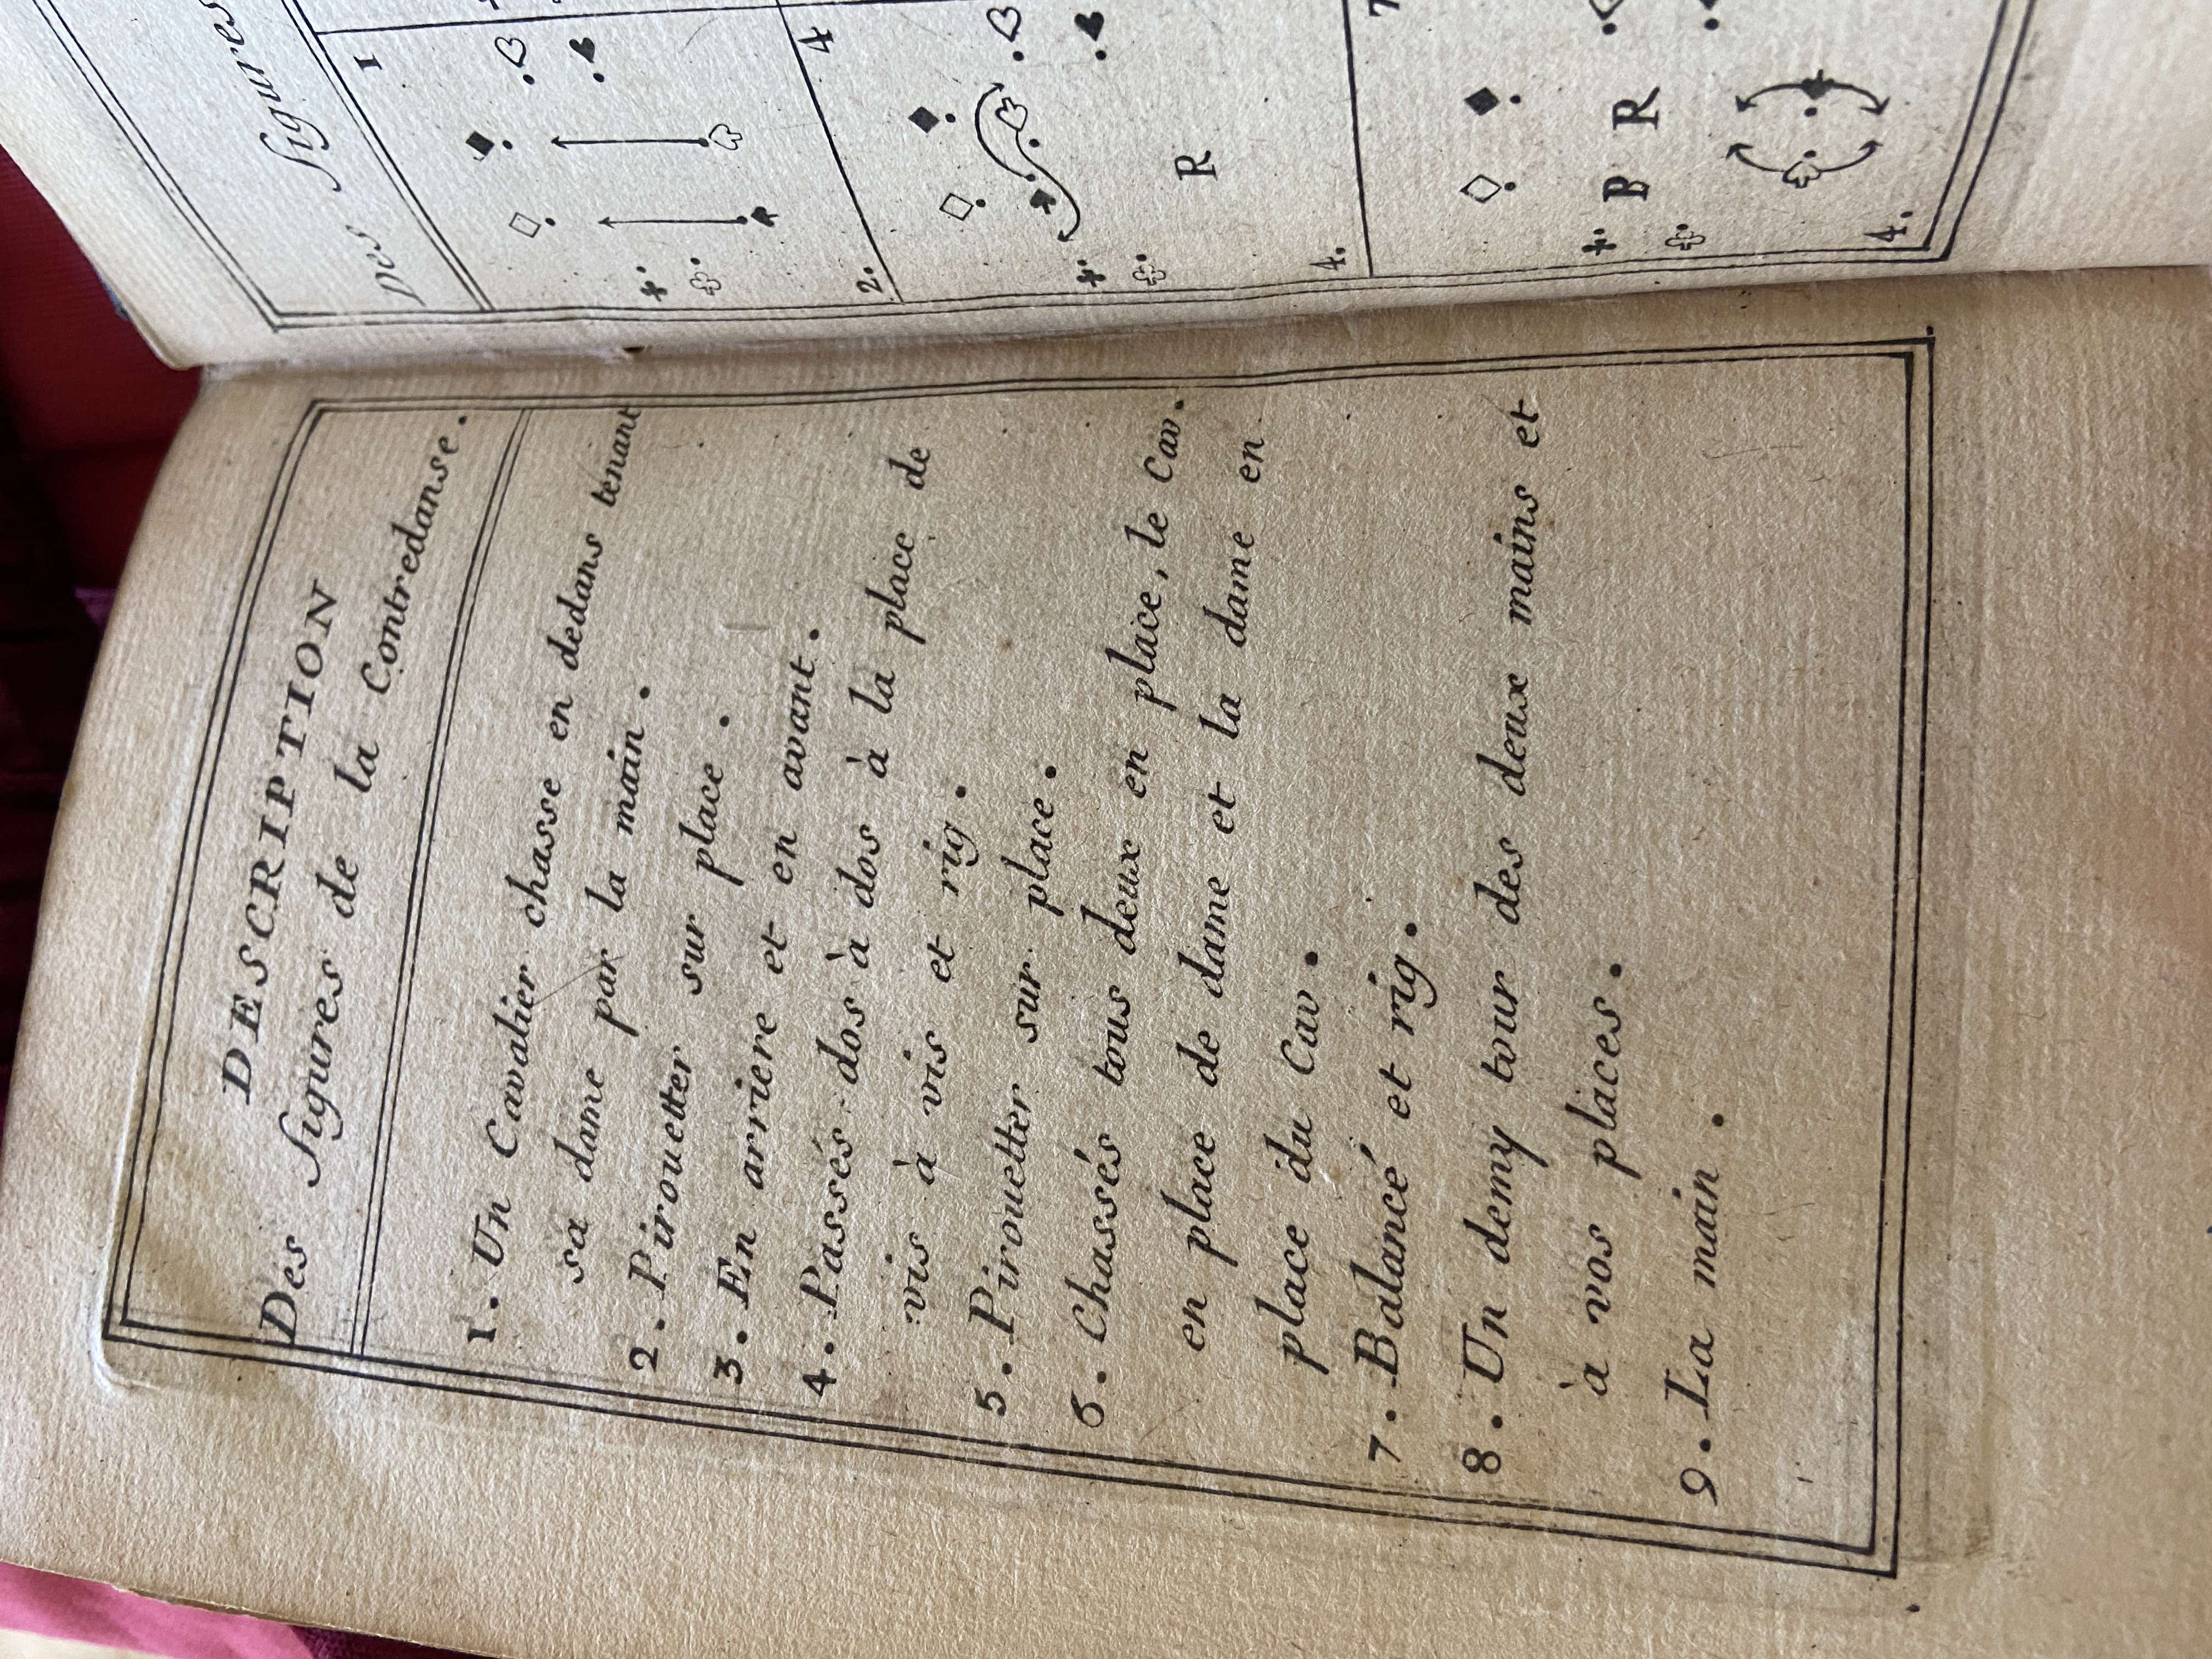 DESCRIPTION
Des figures de la Contredanse.
1. Un Cavalier chasse en dedans tenant
sa dame par la main.
2. Pirouetter sur place.
3. En arriere et en avant.
4. Passés-dos à dos à la place de
vis à vis et rig.
5. Pirouetter sur place.
6. Chassés tous deux en place, le Cav.
en place de dame et la dame en
place du Cav.
7. Balancé et rig.
8. Un demy tour des deux mains et
à vos places.
9. La main.
Des Figures
1
2.
4
R
4.
7
B R
4.